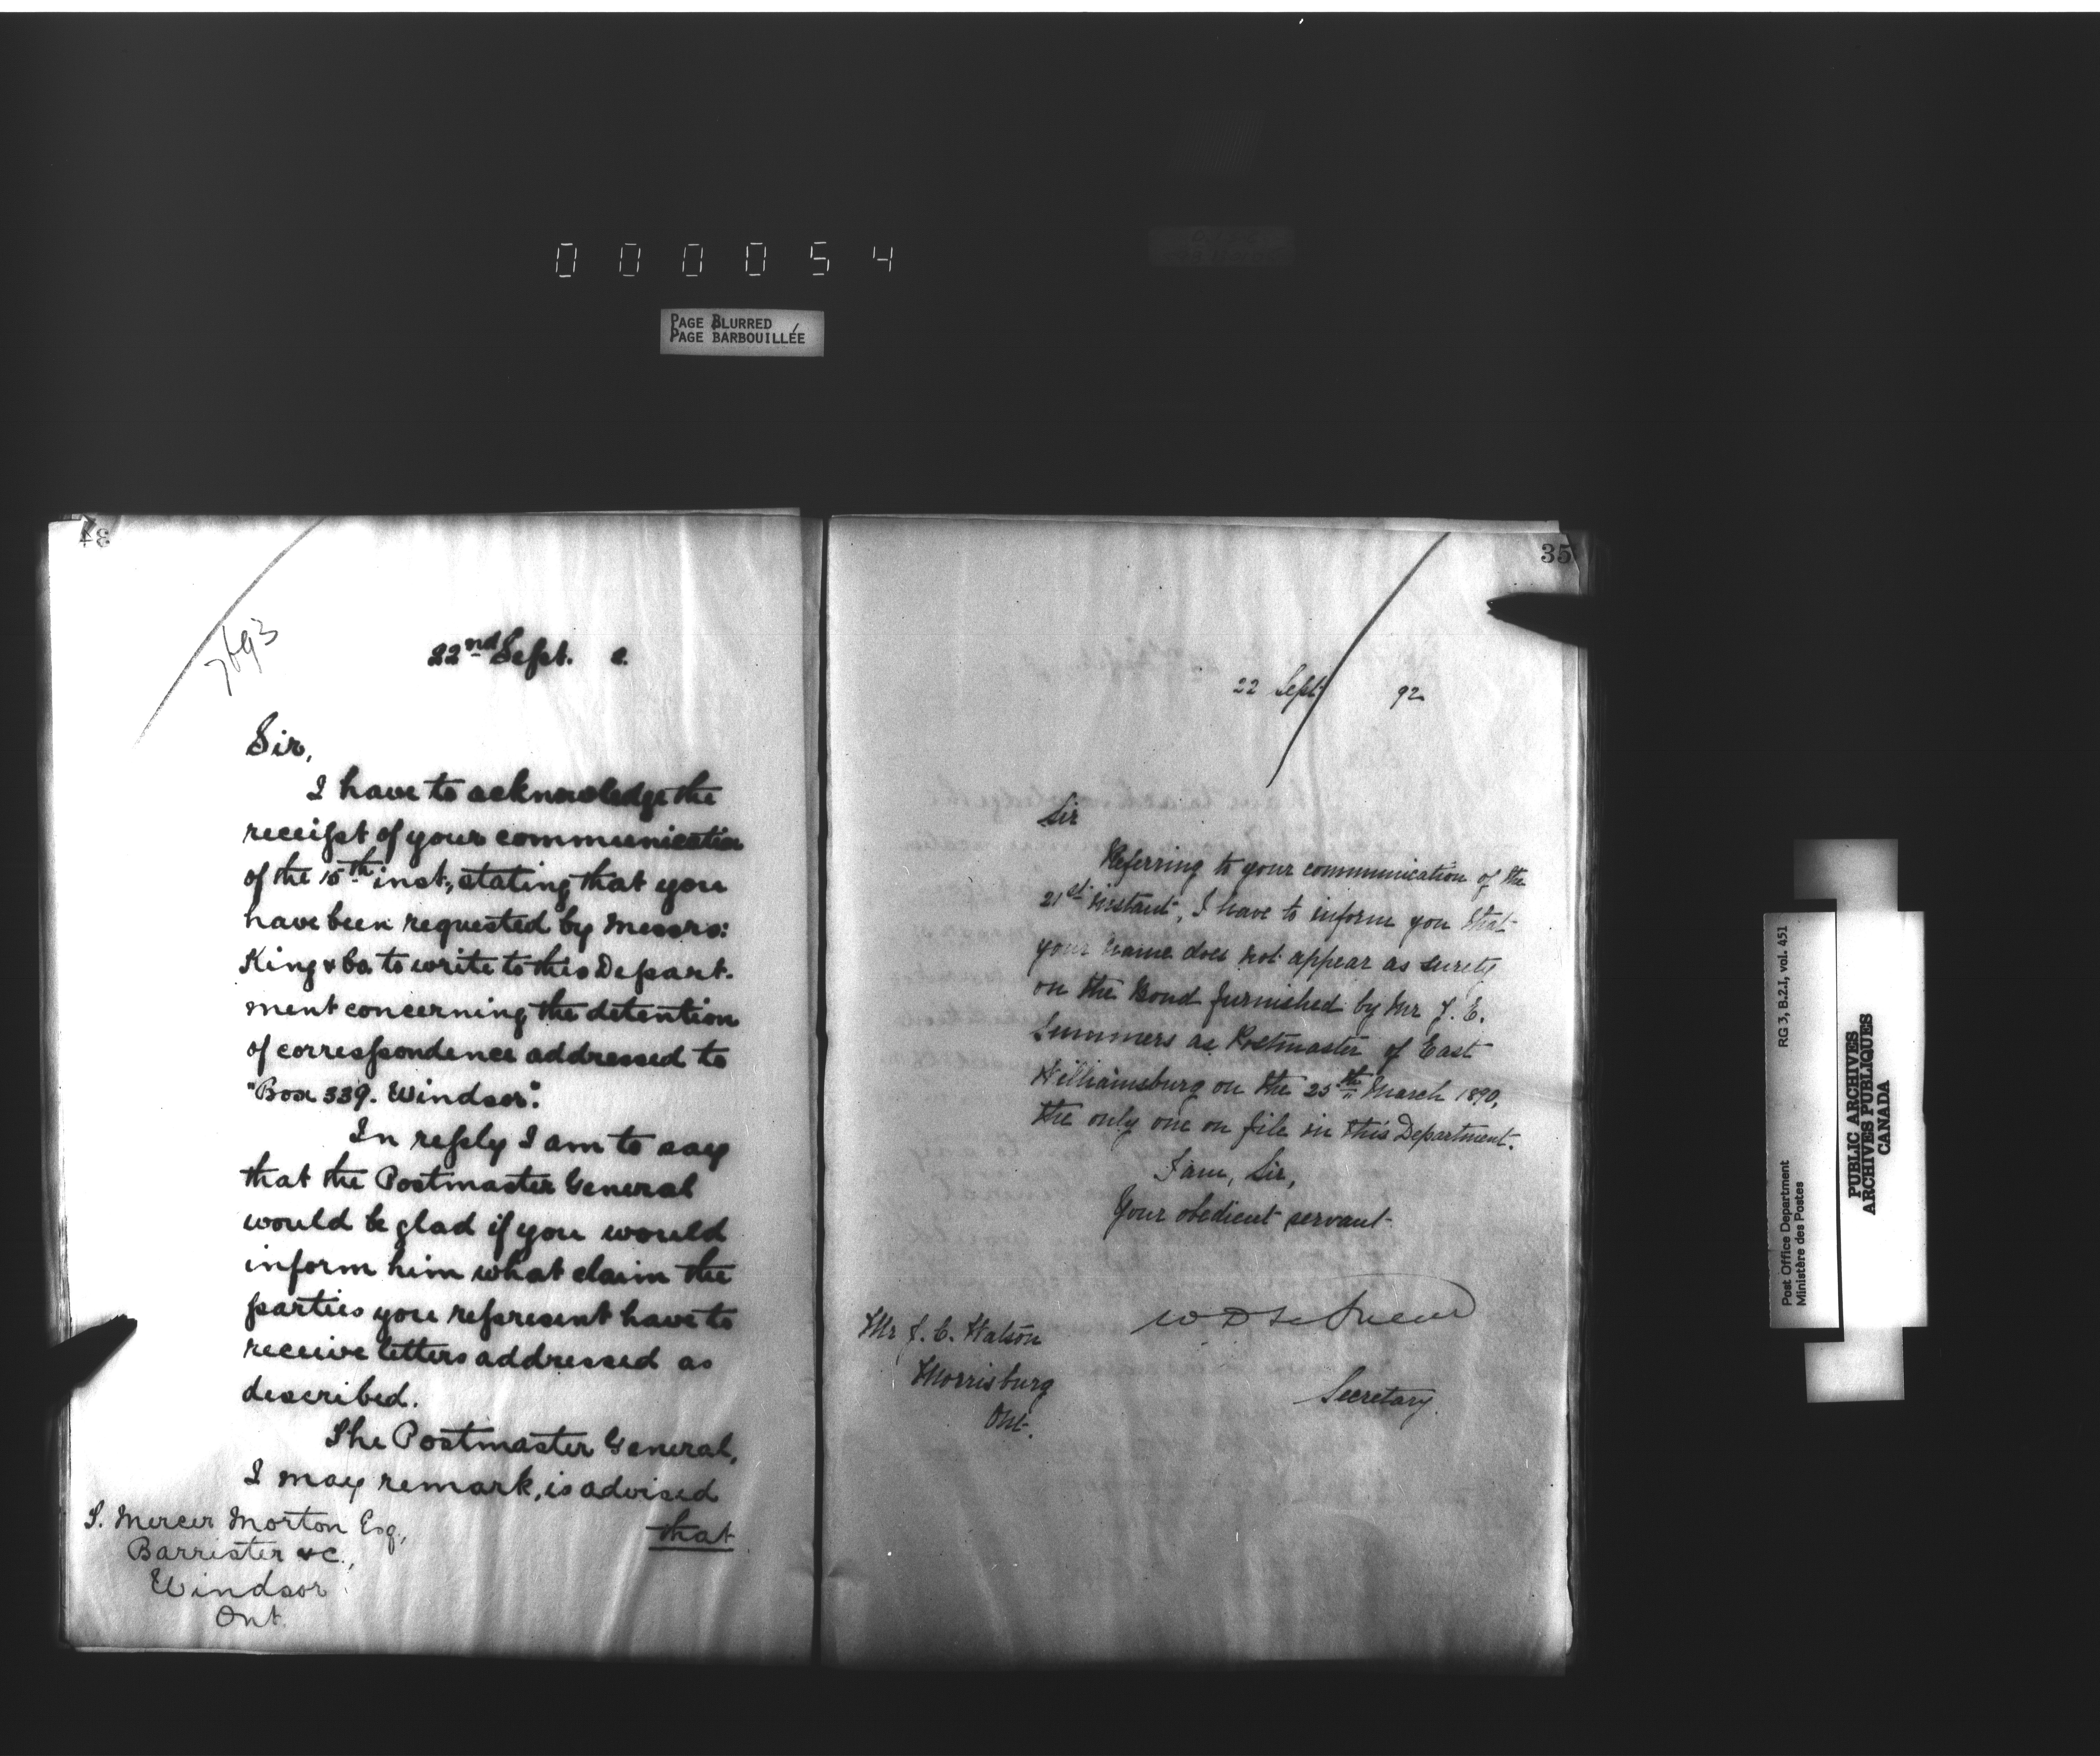 000054
PAGE BLURRED
PAGE BARBOUILLÉE
34
7693
22nd Sept. 2.
Sir,
I have to acknowledge the
receipt of your communication
of the 15th inst., stating that you
have been requested by Messrs:
King & Co. to write to this Depart-
ment concerning the detention
of correspondence addressed to
"Box 339. Windsor".
In reply I am to say
that the Postmaster General
would be glad if you would
inform him what claim the
parties you represent have to
receive letters addressed as
described.
The Postmaster General,
I may remark, is advised
that
S. Mercer Morton Esq.,
Barrister &c.,
Windsor
Ont.
35
22 Sept 92
Sir
Referring to your communication of the
21st instant, I have to inform you that
your name does not appear as surety
on the Bond furnished by Mr J. E.
Summers as Postmaster of East
Williamsburg on the 25th March 1890,
the only one on file in this Department.
I am, Sir,
Your obedient servant
W D LeSueur
Secretary.
Mr J. C. Watson
Morrisburg
Ont.
Post Office Department
Ministère des Postes
RG 3, B.2.I, vol. 451
PUBLIC ARCHIVES
ARCHIVES PUBLIQUES
CANADA